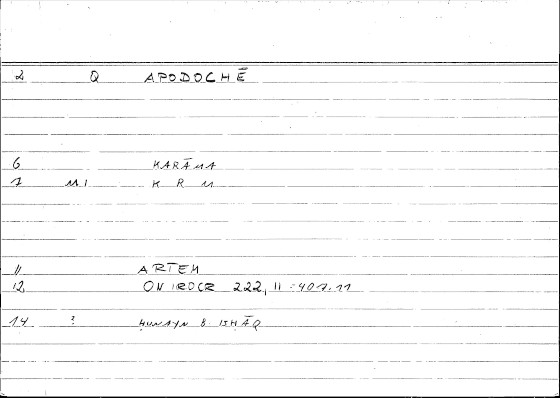 2 Q APODOCHĒ
6 KARĀMA
7 M1 K R M
11 ARTEM
12 ONIROCR 222, 11 = 407.11
14 ? ḤUNAYN B ISḤĀQ